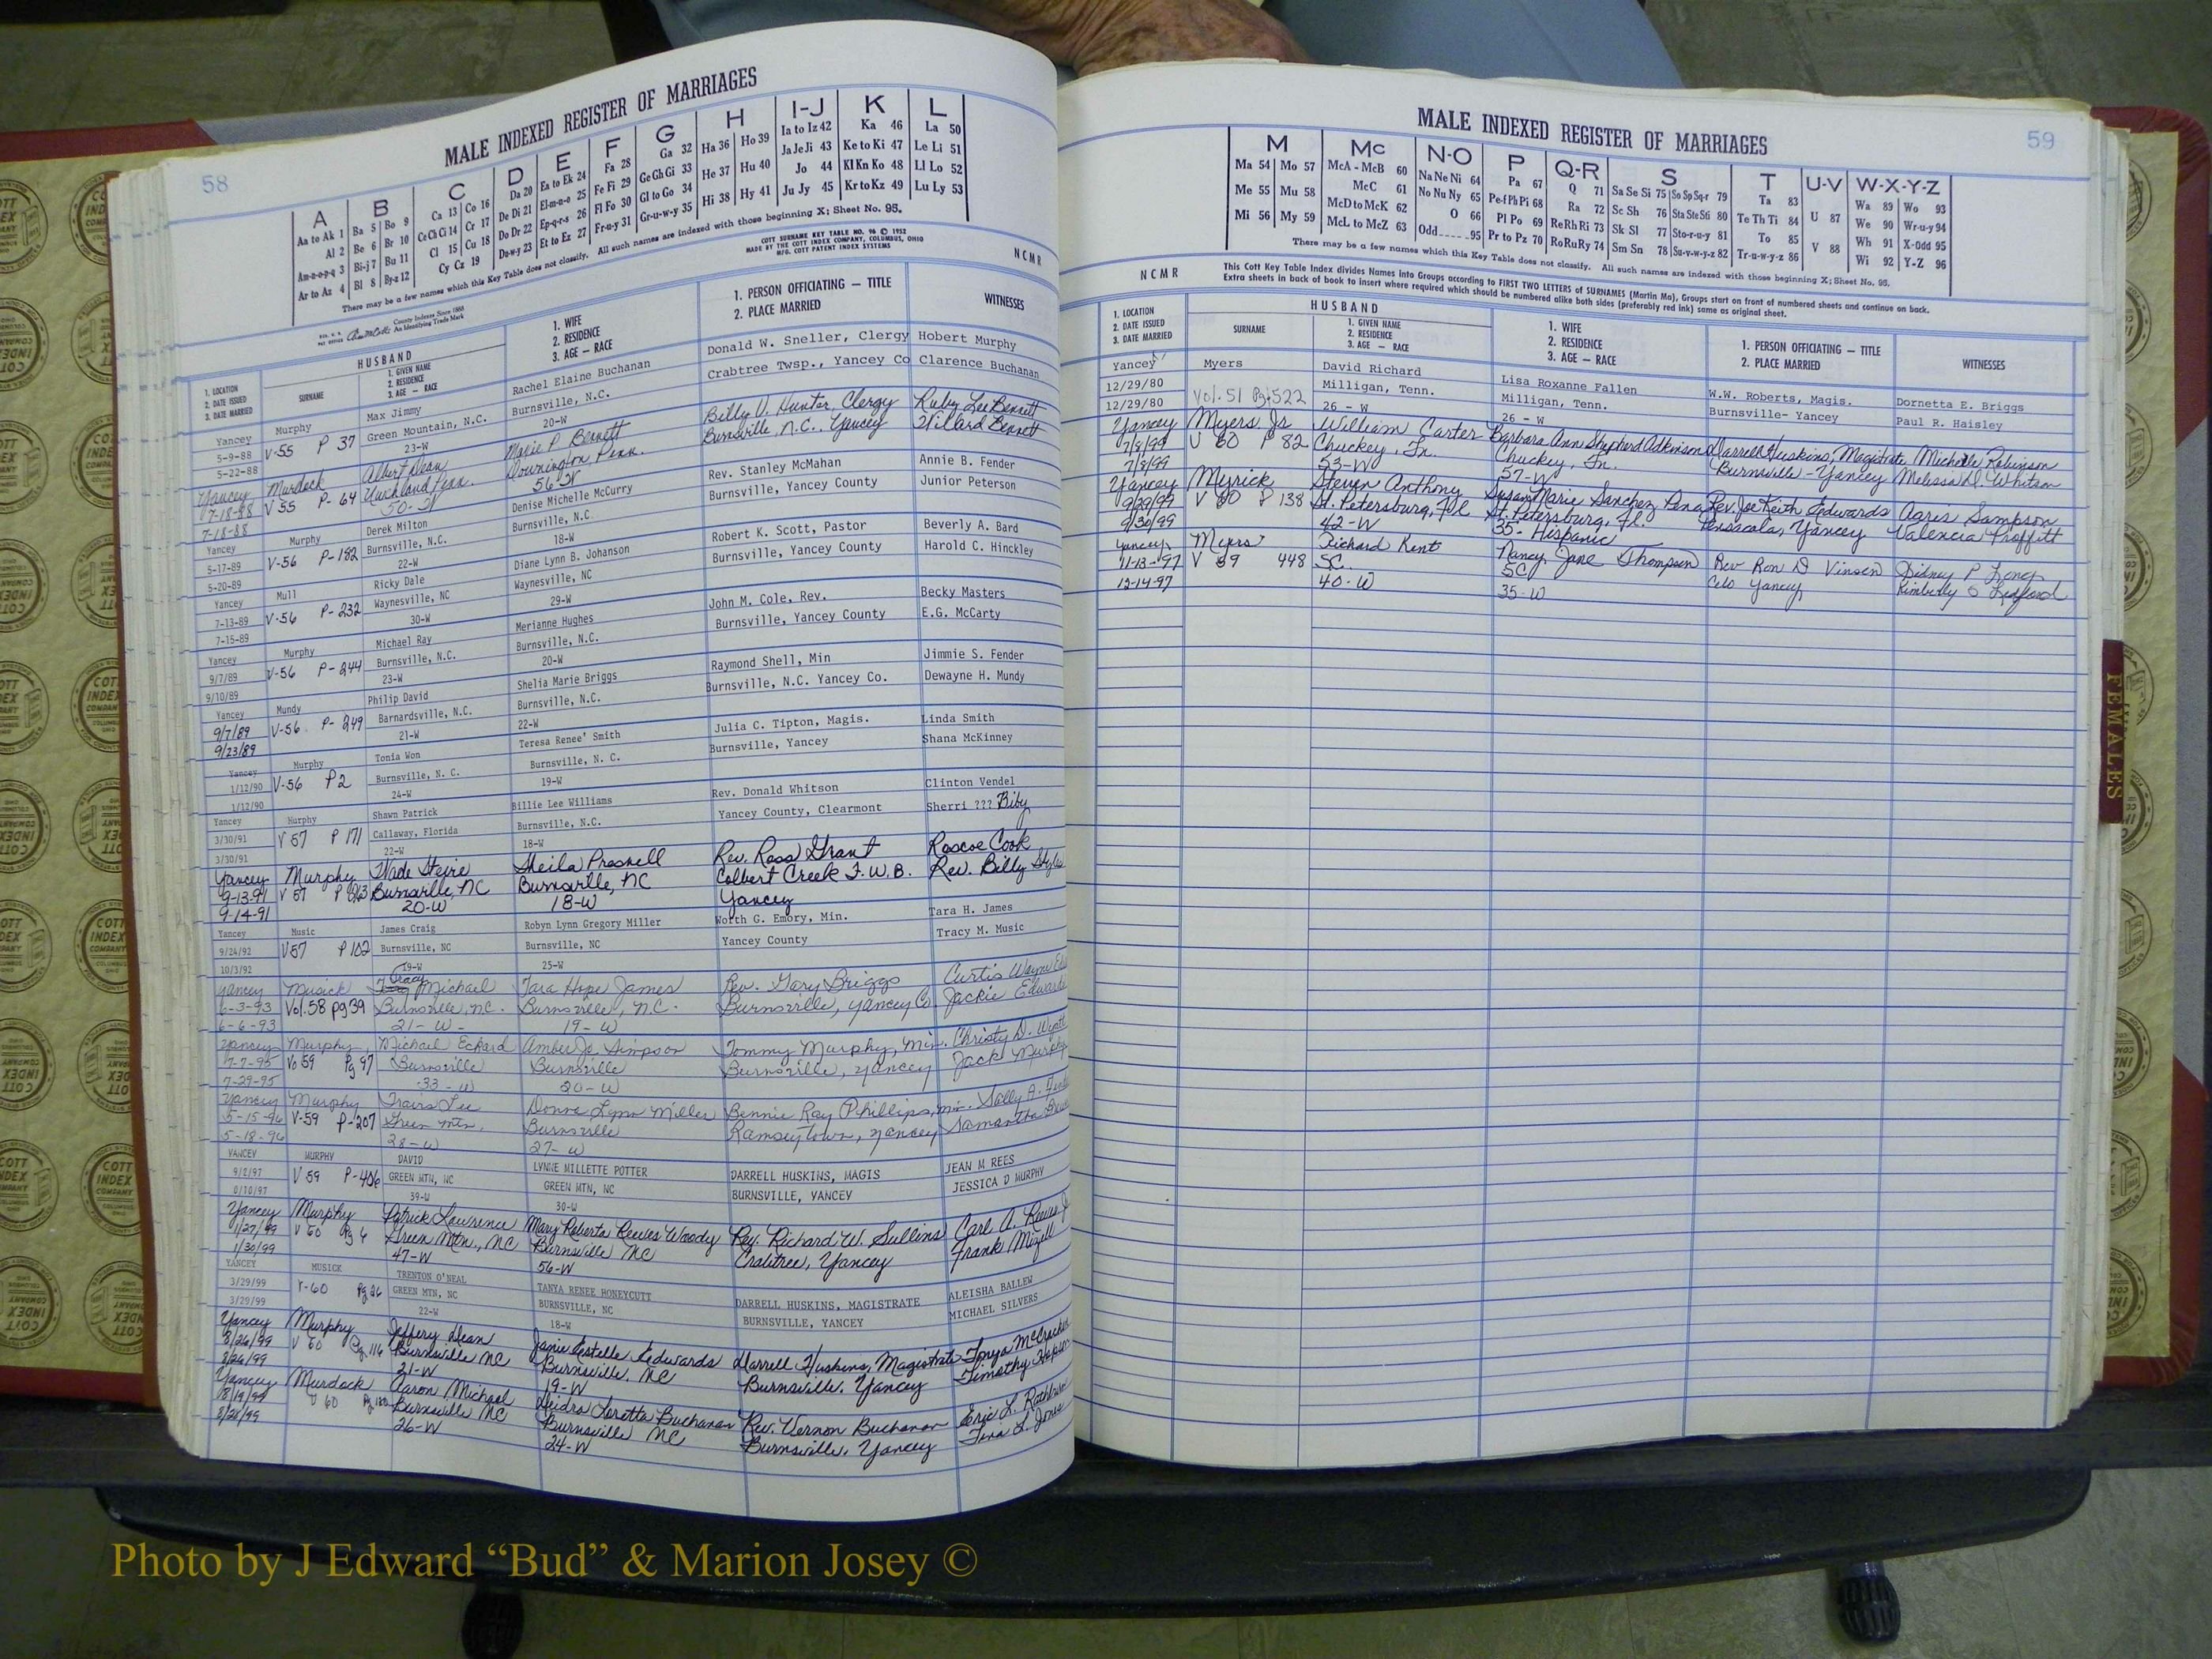 58
MALE INDEXED REGISTER OF MARRIAGES
A B C D E F G H I-J K L
Aa to Ak 1 Ba 5 Bo 9 Ca 13 Co 16 Da 20 Ea to Ek 24 Fa 28 Ga 32 Ha 36 Ho 39 Ia to Iz 42 Ka 46 La 50
Al 2 Be 6 Br 10 Ce Ch Ci 14 Cr 17 De Di 21 El-m-n-o 25 Fe Fi 29 Ge Gh Gi 33 He 37 Hu 40 Ja Je Ji 43 Ke to Ki 47 Le Li 51
Am-n-o-p-q 3 Bi-j 7 Bu 11 Cl 15 Cu 18 Do Dr 22 Ep-q-r-s 26 Fl Fo 30 Gl to Go 34 Hi 38 Hy 41 Jo 44 Kl Kn Ko 48 Ll Lo 52
Ar to Az 4 Bl 8 By-z 12 Cy Cz 19 Du-w-y 23 Et to Ez 27 Fr-u-y 31 Gr-u-w-y 35 Ju Jy 45 Kr to Kz 49 Lu Ly 53
There may be a few names which this Key Table does not classify. All such names are indexed with those beginning X; Sheet No. 95.
County Indexes Since 1888
An Identifying Trade Mark
COTT SURNAME KEY TABLE NO. 96 © 1952
MADE BY THE COTT INDEX COMPANY, COLUMBUS, OHIO
MFG. COTT PATENT INDEX SYSTEMS
NCMR
HUSBAND
1. LOCATION
2. DATE ISSUED
3. DATE MARRIED
SURNAME
1. GIVEN NAME
2. RESIDENCE
3. AGE — RACE
1. WIFE
2. RESIDENCE
3. AGE - RACE
1. PERSON OFFICIATING — TITLE
2. PLACE MARRIED
WITNESSES
Yancey Murphy Max Jimmy Rachel Elaine Buchanan Donald W. Sneller, Clergy Hobert Murphy
5-9-88 V-55 P 37 Green Mountain, N.C. Burnsville, N.C. Crabtree Twsp., Yancey Co Clarence Buchanan
5-22-88 23-W 20-W
Yancey Murdock Albert Dean Marie P. Bennett Billy V. Hunter, Clergy Ruby Lee Bennett
7-18-88 V 55 P- 64 Downington, Penn. Burnsville, N.C., Yancey Willard Bennett
7-18-88 50-W 56 W
Yancey Murphy Derek Milton Denise Michelle McCurry Rev. Stanley McMahan Annie B. Fender
5-17-89 V-56 P-182 Burnsville, N.C. Burnsville, N.C. Burnsville, Yancey County Junior Peterson
5-20-89 22-W 18-W
Yancey Mull Ricky Dale Diane Lynn B. Johanson Robert K. Scott, Pastor Beverly A. Bard
7-13-89 V-56 P- 232 Waynesville, NC Waynesville, NC Burnsville, Yancey County Harold C. Hinckley
7-15-89 30-W 29-W
Yancey Murphy Michael Ray Merianne Hughes John M. Cole, Rev. Becky Masters
9/7/89 V-56 P- 244 Burnsville, N.C. Burnsville, N.C. Burnsville, Yancey County E.G. McCarty
9/10/89 23-W 20-W
Yancey Mundy Philip David Shelia Marie Briggs Raymond Shell, Min Jimmie S. Fender
9/7/89 V-56 P- 249 Barnardsville, N.C. Burnsville, N.C. Burnsville, N.C. Yancey Co. Dewayne H. Mundy
9/23/89 21-W 22-W
Yancey Murphy Tonia Won Teresa Renee' Smith Julia C. Tipton, Magis. Linda Smith
1/12/90 V-56 P 2 Burnsville, N. C. Burnsville, N. C. Burnsville, Yancey Shana McKinney
1/12/90 24-W 19-W
Yancey Murphy Shawn Patrick Billie Lee Williams Rev. Donald Whitson Clinton Vendel
3/30/91 V 57 P 171 Callaway, Florida Burnsville, N.C. Yancey County, Clearmont Sherri ??? Biby
3/30/91 22-W 18-W
Yancey Murphy Wade Steve Sheila Presnell Rev. Ross Grant Roscoe Cook
9-13-91 V 57 Burnsville, NC Burnsville, NC Colbert Creek F.W.B. Rev. Billy Styles
9-14-91 20-W 18-W Yancey
Yancey Music James Craig Robyn Lynn Gregory Miller Worth G. Emory, Min. Tara H. James
9/24/92 V57 P 102 Burnsville, NC Burnsville, NC Yancey County Tracy M. Music
10/3/92 19-W 25-W
Yancey Musick Tracy Michael Tara Hope James Rev. Gary Briggs Curtis Wayne
6-3-93 Vol. 58 pg 39 Burnsville, NC. Burnsville, N.C. Burnsville, Yancey Co Jackie Edwards
6-6-93 21- W - 19- W
Yancey Murphy Michael Eckard Amber Jo Simpson Tommy Murphy, Min. Christy D.
7-7-95 Vo 59 Pg 97 Burnsville Burnsville Burnsville, Yancey Jack Murphy
7-29-95 33 - W 20- W
Yancey Murphy Travis Lee Donna Lynn Miller Bennie Ray Phillips, Min. Sally A.
5-15-96 V-59 P-207 Green Mtn. Burnsville Ramseytown, Yancey Samantha
5-18-96 28-W 27- W
YANCEY MURPHY DAVID LYNNE MILLETTE POTTER DARRELL HUSKINS, MAGIS JEAN M REES
9/8/97 V 59 P-406 GREEN MTN, NC GREEN MTN, NC BURNSVILLE, YANCEY JESSICA D MURPHY
39-W 30-W
Yancey Murphy Patrick Lawrence Mary Roberta Reeves Woody Rev. Richard W. Sullins Carl A. Reeves
1/27/99 V 60 Pg 6 Green Mtn., NC Burnsville NC Crabtree, Yancey Frank Mizell
1/30/99 47-W 56-W
YANCEY MUSICK TRENTON O'NEAL TANYA RENEE HONEYCUTT DARRELL HUSKINS, MAGISTRATE ALEISHA BALLEW
3/29/99 V-60 Pg 26 GREEN MTN, NC BURNSVILLE, NC BURNSVILLE, YANCEY MICHAEL SILVERS
3/29/99 22-W 18-W
Yancey Murphy Jeffery Dean Jamie Estelle Edwards Darrell Huskins, Magistrate Tonya McCracken
8/26/99 V 60 Pg 116 Burnsville NC Burnsville, NC Burnsville, Yancey Timothy
8/26/99 21-W 19-W
Yancey Murdock Aaron Michael Deidra Loretta Buchanan Rev. Vernon Buchanan Eric L. Rathburn
8/19/99 V 60 Burnsville NC Burnsville NC Burnsville, Yancey Tina L. Jones
8/28/99 26-W 24-W
59
MALE INDEXED REGISTER OF MARRIAGES
M Mc N-O P Q-R S T U-V W-X-Y-Z
Ma 54 Mo 57 McA - McB 60 Na Ne Ni 64 Pa 67 Q 71 Sa Se Si 75 So Sp Sq-r 79 Ta 83 Wa 89 Wo 93
Me 55 Mu 58 McC 61 No Nu Ny 65 Pe-f Ph Pi 68 Ra 72 Sc Sh 76 Sta Ste Sti 80 Te Th Ti 84 U 87 We 90 Wr-u-y 94
Mi 56 My 59 McD to McK 62 O 66 Pl Po 69 Re Rh Ri 73 Sk Sl 77 Sto-r-u-y 81 To 85 Wh 91 X-Odd 95
McL to McZ 63 Odd 95 Pr to Pz 70 Ro Ru Ry 74 Sm Sn 78 Su-v-w-y-z 82 Tr-u-w-y-z 86 V 88 Wi 92 Y-Z 96
There may be a few names which this Key Table does not classify. All such names are indexed with those beginning X; Sheet No. 95.
NCMR
This Cott Key Table Index divides Names into Groups according to FIRST TWO LETTERS of SURNAMES (Martin Ma), Groups start on front of numbered sheets and continue on back.
Extra sheets in back of book to insert where required which should be numbered alike both sides (preferably red ink) same as original sheet.
HUSBAND
1. LOCATION
2. DATE ISSUED
3. DATE MARRIED
SURNAME
1. GIVEN NAME
2. RESIDENCE
3. AGE — RACE
1. WIFE
2. RESIDENCE
3. AGE — RACE
1. PERSON OFFICIATING — TITLE
2. PLACE MARRIED
WITNESSES
Yancey Myers David Richard Lisa Roxanne Fallen W.W. Roberts, Magis. Dornetta E. Briggs
12/29/80 Vol. 51 Pg. 522 Milligan, Tenn. Milligan, Tenn. Burnsville- Yancey Paul R. Haisley
12/29/80 26 - W 26 - W
Yancey Myers Jr William Carter Barbara Ann Shepherd Adkinson Darrell Huskins, Magistrate Michelle Robinson
7/8/99 V 60 P 82 Chuckey, Tn. Chuckey, Tn. Burnsville - Yancey Melissa D. Whitson
7/8/99 53-W 57-W
Yancey Myrick Steven Anthony Susan Marie Sanchez Pena Rev. Joe Keith Edwards Agris Sampson
9/29/99 V 60 P 138 St. Petersburg, Fl St. Petersburg, Fl. Pensacola, Yancey Valencia Proffitt
9/30/99 42-W 35- Hispanic
Yancey Myers Richard Kent Nancy Jane Thompson Rev Ron D Vinson Sidney P Long
11-13-97 V 59 448 SC. SC Celo Yancey Kimberly S Ledford
12-14-97 40-W 35-W
FEMALES
COTT INDEX COMPANY
Photo by J Edward “Bud” & Marion Josey ©